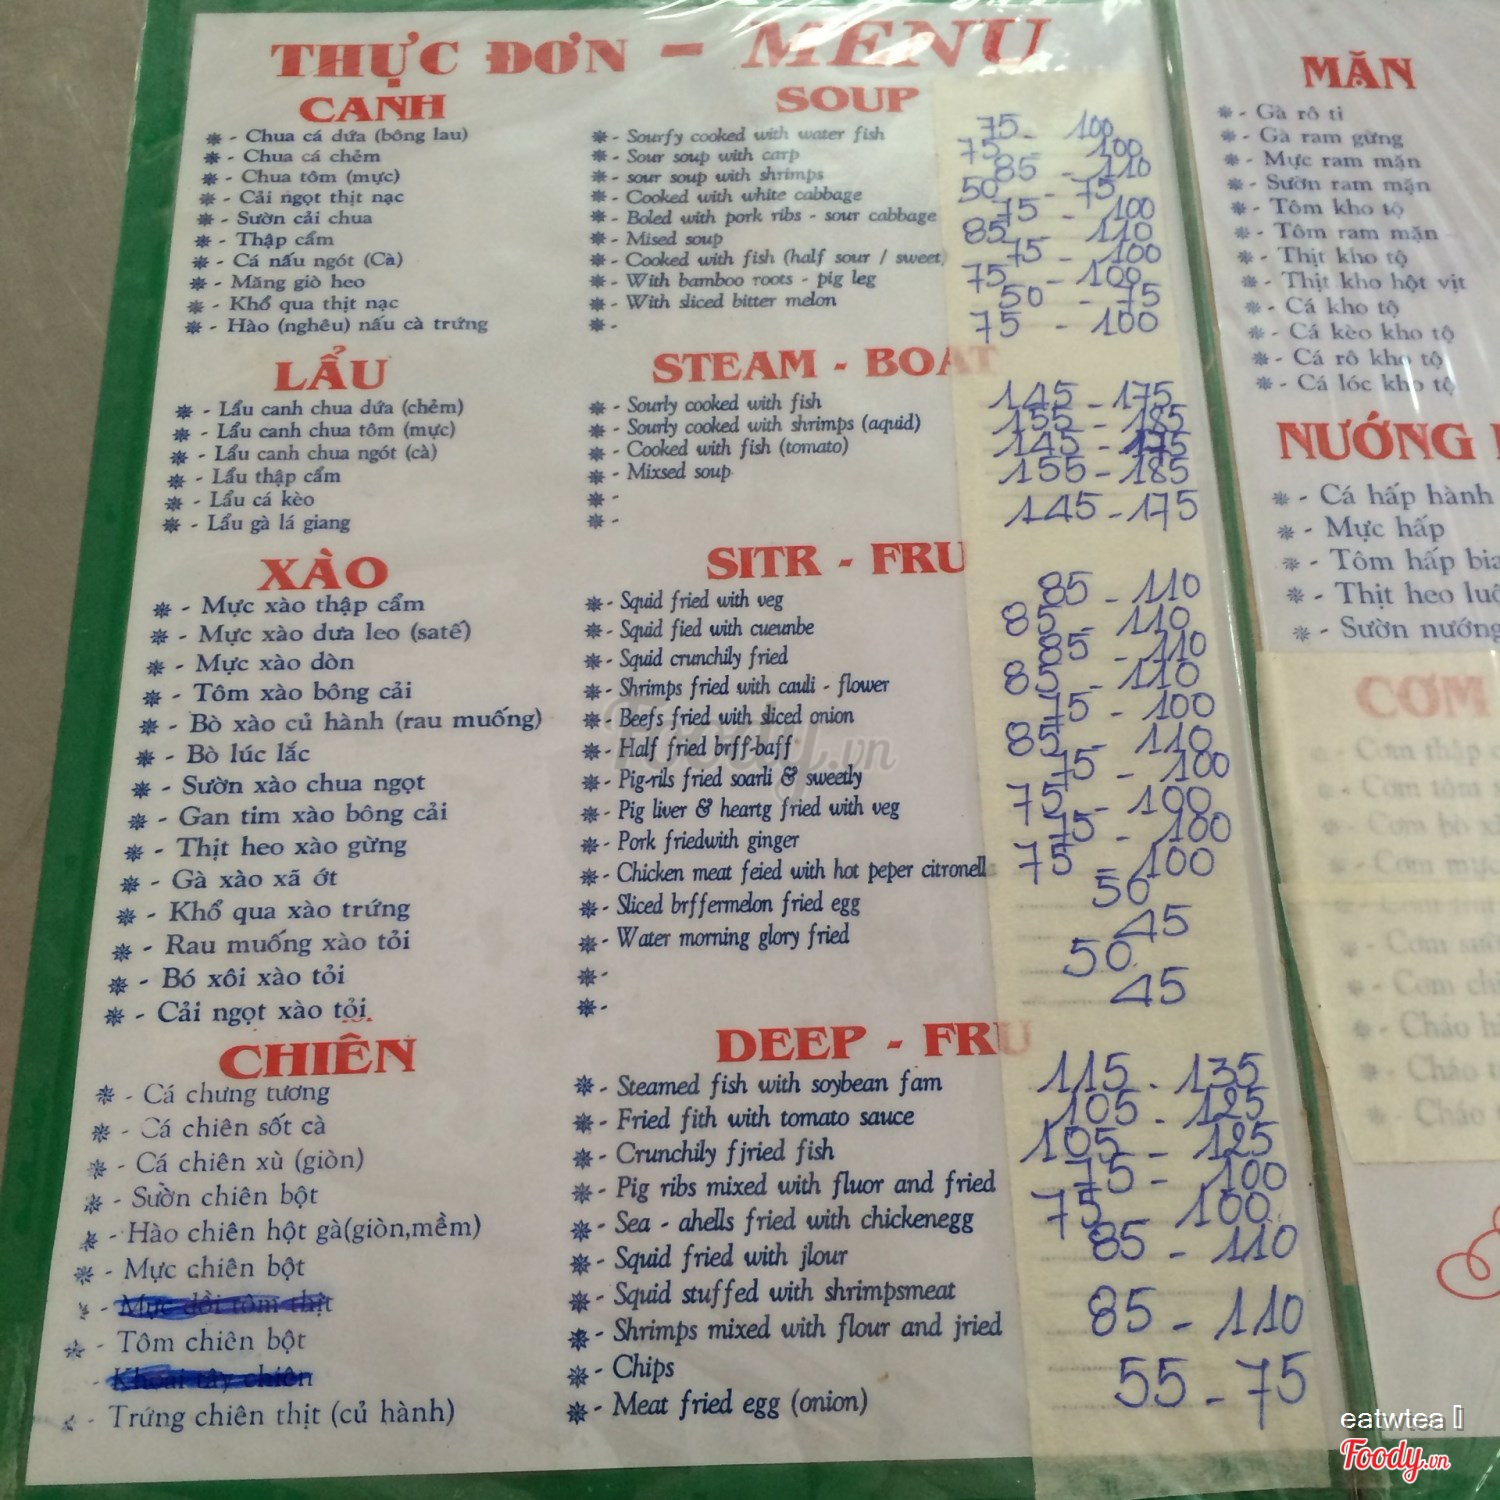 THỰC ĐƠN - MENU
CANH
- Chua cá dứa (bông lau)
- Chua cá chẻm
- Chua tôm (mực)
- Cải ngọt thịt nạc
- Sườn cải chua
- Thập cẩm
- Cá nấu ngót (Cà)
- Măng giò heo
- Khổ qua thịt nạc
- Hào (nghêu) nấu cà trứng
LẨU
- Lẩu canh chua dứa (chẻm)
- Lẩu canh chua tôm (mực)
- Lẩu canh chua ngót (cà)
- Lẩu thập cẩm
- Lẩu cá kèo
- Lẩu gà lá giang
XÀO
- Mực xào thập cẩm
- Mực xào dưa leo (satế)
- Mực xào dòn
- Tôm xào bông cải
- Bò xào củ hành (rau muống)
- Bò lúc lắc
- Sườn xào chua ngọt
- Gan tim xào bông cải
- Thịt heo xào gừng
- Gà xào xã ớt
- Khổ qua xào trứng
- Rau muống xào tỏi
- Bó xôi xào tỏi
- Cải ngọt xào tỏi
CHIÊN
- Cá chưng tương
- Cá chiên sốt cà
- Cá chiên xù (giòn)
- Sườn chiên bột
- Hào chiên hột gà(giòn,mềm)
- Mực chiên bột
- Mực dồi tôm thịt
- Tôm chiên bột
- Khoai tây chiên
- Trứng chiên thịt (củ hành)
SOUP
- Sourfy cooked with water fish 75 - 100
- Sour soup with carp 75 - 100
- sour soup with shrimps 85 - 110
- Cooked with white cabbage 50 - 75
- Boled with pork ribs - sour cabbage 75 - 100
- Mised soup 85 - 110
- Cooked with fish (half sour / sweet) 75 - 100
- With bamboo roots - pig leg 75 - 100
- With sliced bitter melon 50 - 75
- 75 - 100
STEAM - BOAT
- Sourly cooked with fish 145 - 175
- Sourly cooked with shrimps (aquid) 155 - 185
- Cooked with fish (tomato) 145 - 175
- Mixsed soup 155 - 185
-
- 145 - 175
SITR - FRU
- Squid fried with veg 85 - 110
- Squid fied with cueunbe 85 - 110
- Squid crunchily fried 85 - 110
- Shrimps fried with cauli - flower 85 - 110
- Beefs fried with sliced onion 75 - 100
- Half fried brff-baff 85 - 110
- Pig-rils fried soarli & sweetly 75 - 100
- Pig liver & heartg fried with veg 75 - 100
- Pork friedwith ginger 75 - 100
- Chicken meat feied with hot peper citronell 75 - 100
- Sliced brffermelon fried egg 50
- Water morning glory fried 45
- 50
- 45
DEEP - FRU
- Steamed fish with soybean fam 115 - 135
- Fried fith with tomato sauce 105 - 125
- Crunchily fjried fish 105 - 125
- Pig ribs mixed with fluor and fried 75 - 100
- Sea - ahells fried with chickenegg 75 - 100
- Squid fried with jlour 85 - 110
- Squid stuffed with shrimpsmeat
- Shrimps mixed with flour and jried 85 - 110
- Chips
- Meat fried egg (onion) 55 - 75
MẶN
- Gà rô ti
- Gà ram gừng
- Mực ram mặn
- Sườn ram mặn
- Tôm kho tộ
- Tôm ram mặn
- Thịt kho tộ
- Thịt kho hột vịt
- Cá kho tộ
- Cá kèo kho tộ
- Cá rô kho tộ
- Cá lóc kho tộ
NƯỚNG
- Cá hấp hành
- Mực hấp
- Tôm hấp bia
- Thịt heo luộ
- Sườn nướng
CƠM
- Cơm thập
- Cơm tôm
- Cơm bò x
- Cơm mực
- Cơm sườ
- Cơm chi
- Cháo h
- Cháo t
- Cháo
Foody.vn
eatwtea
Foody.vn